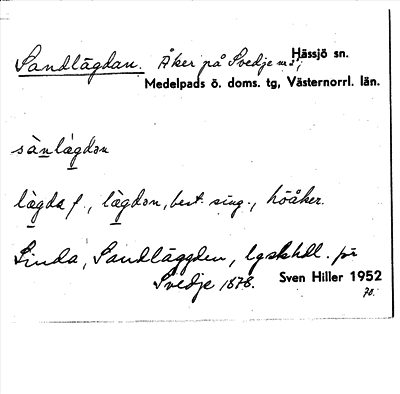 Sandlägdan. Åker på Svedje Hässjö sn.
Medelpads ö. doms. tg, Västernorrl. län.
sànlàgdən
lägda f., lägdən, best. sing., höåker.
Linda, Sandläggden, lgskhdl. för
Svedje 1878. Sven Hiller 1952
70.